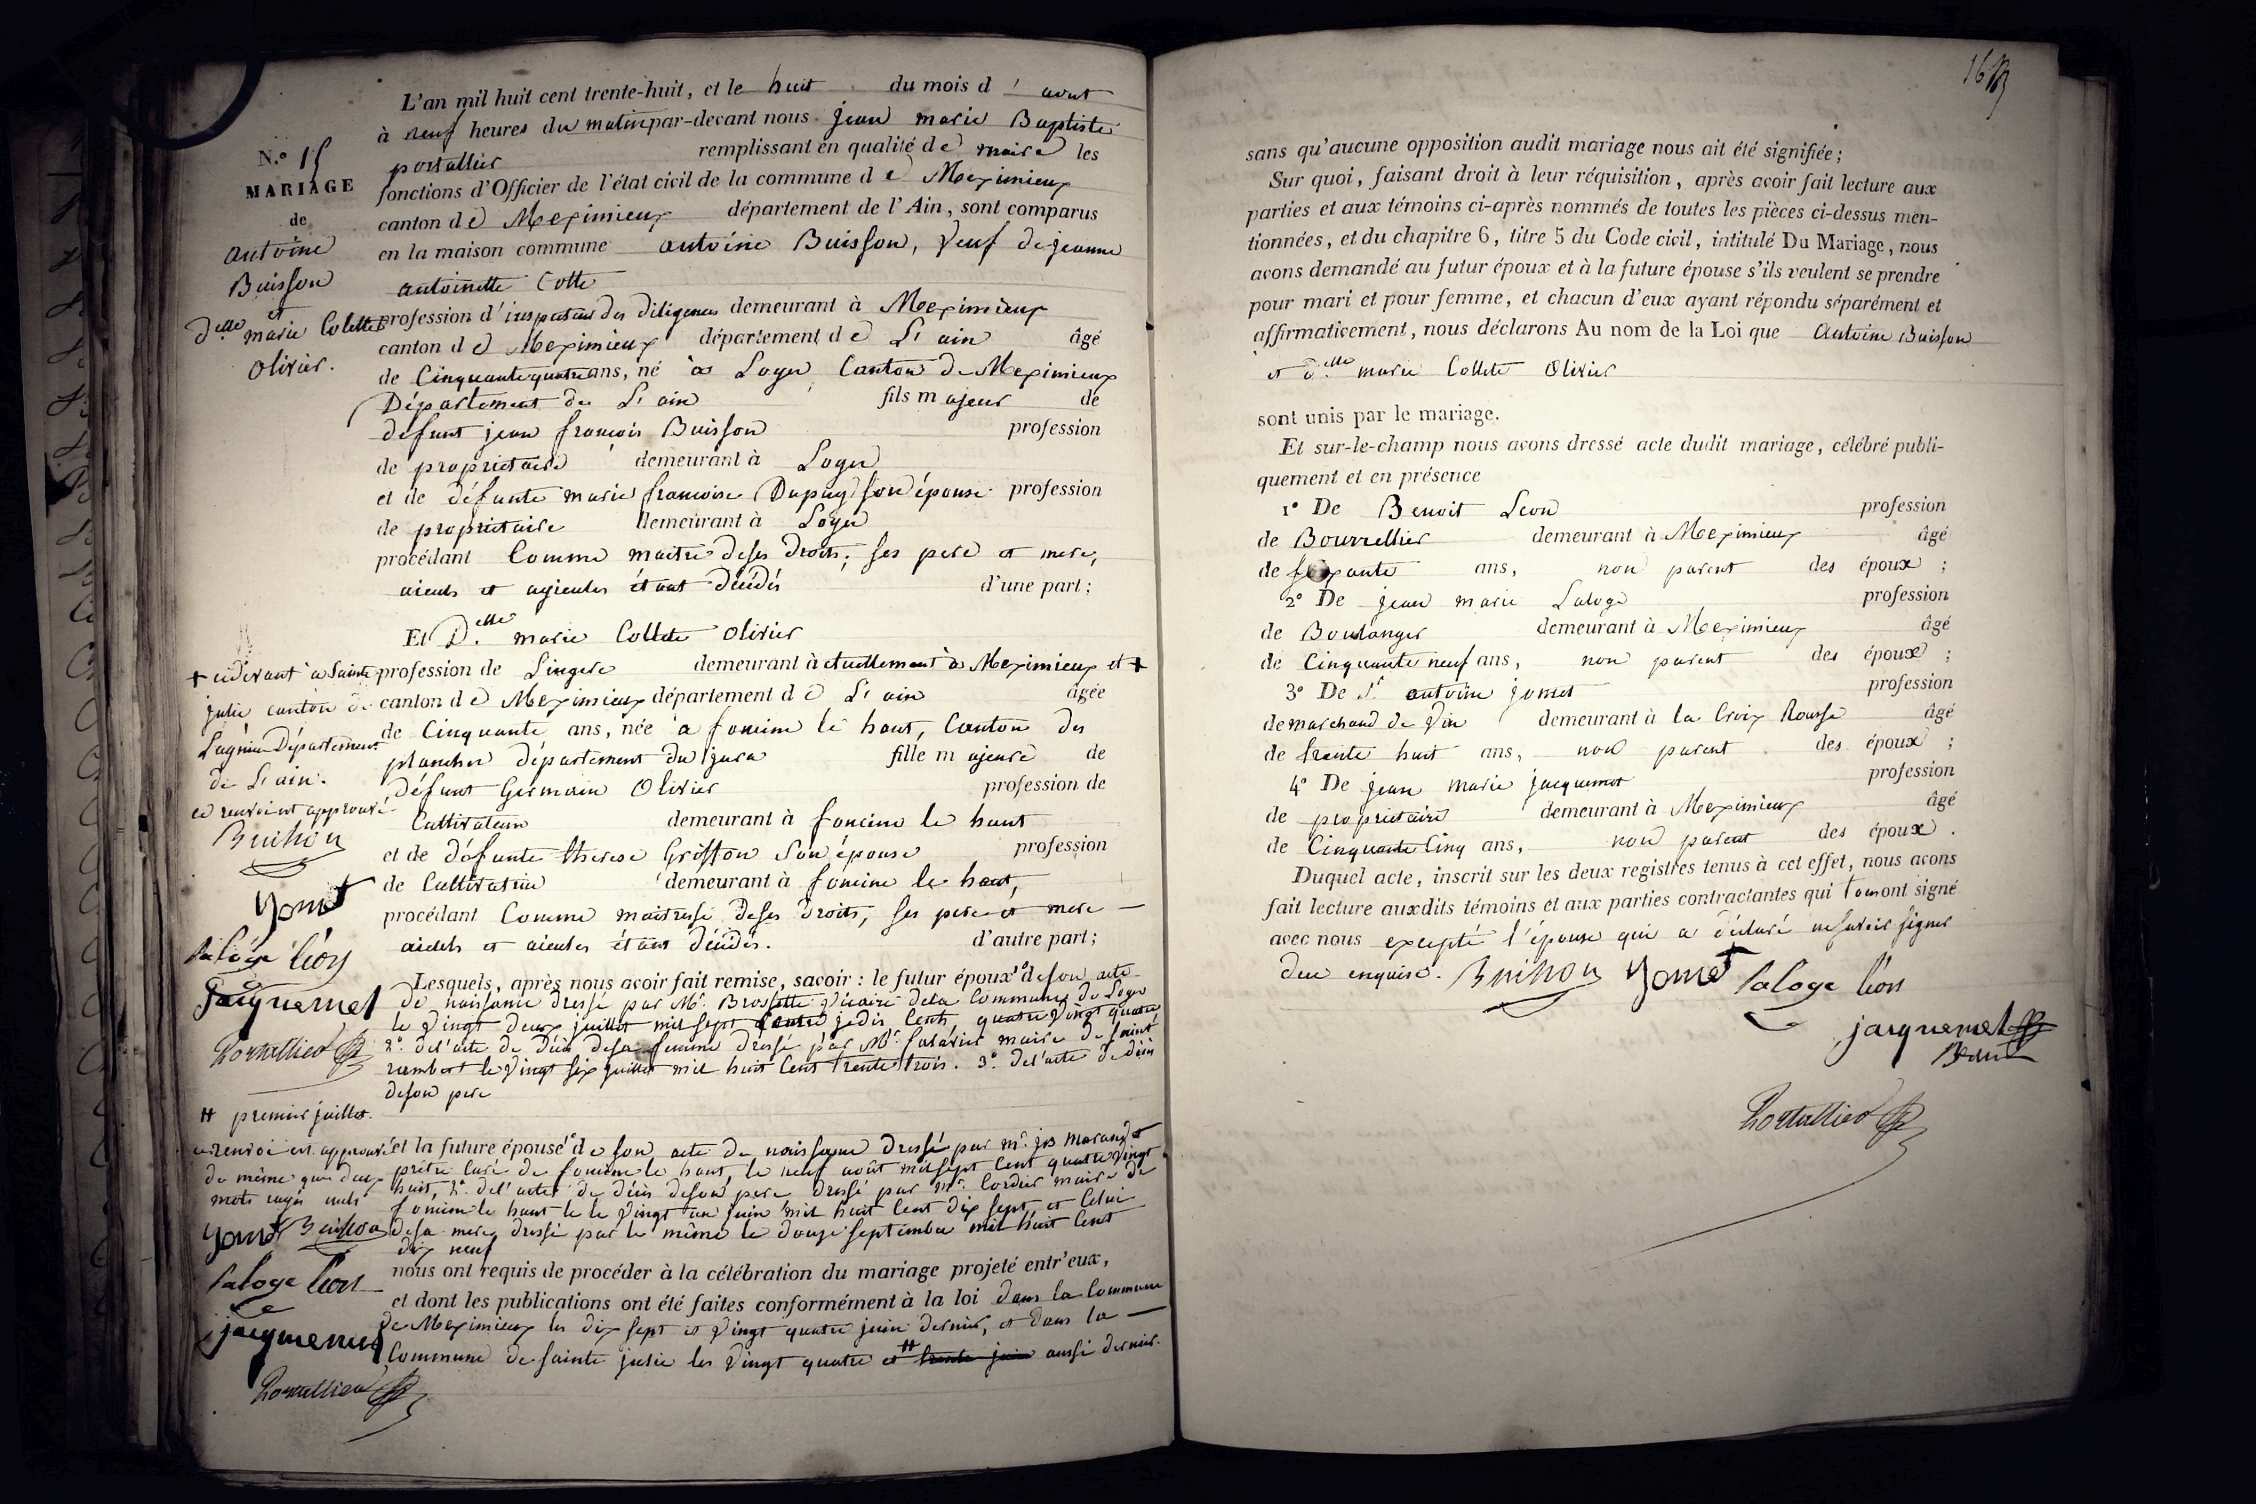 L'an mil huit cent trente-huit, et le huit du mois d'aout
à neuf heures du matin par-devant nous jean marie Baptiste
portallier remplissant en qualité de maire les
fonctions d'Officier de l'état civil de la commune de Meximieux
canton de Meximieux département de l'Ain, sont comparus
en la maison commune antoine Buisson, veuf de jeanne
antoinette Cotte
profession d'inspecteur des diligences demeurant à Meximieux
canton de Meximieux département de L'ain âgé
de Cinquante quatre ans, né à Loyes Canton de Meximieux
Département de L'ain fils majeur de
défunt jean françois Buisson profession
de propriétaire demeurant à Loyes
et de défunte marie françoise Dupuy son épouse profession
de propriétaire demeurant à Loyes
procédant Comme maitre de ses droits; ses pere et mere,
aieuls et ayieules étant décédés d'une part;
Et D.elle marie Collete Olivier
profession de Lingere demeurant actuellement à Meximieux et +
canton de Meximieux département de L'ain âgée
de Cinquante ans, née à foncine le haut, Canton des
planches département du jura fille majeure de
Défunt Germain Olivier profession de
Cultivateur demeurant à foncine le haut
et de défunte therese Griffon son épouse profession
de Cultivateur demeurant à foncine le haut,
procédant Comme maitresse de ses droits, ses pere et mere —
aieuls et aieules étant décédés. d'autre part;
Lesquels, après nous avoir fait remise, savoir : le futur époux 1° de son acte
de naissance dressé par Mr. Brossette vicaire de la Commune de Loyes
le vingt deux juillet mil sept jadis Cents quatre vingt quatre
2° de l'acte de décès de sa femme dressé par Mr. maire de saint
rambert le vingt six juillet mil huit Cent trente trois. 3° de l'acte de décès
de son pere
et la future épouse 1° de son acte de naissance dressé par mr. jh
prêtre curé de foncine le haut, le neuf août mil sept Cent quatre vingt
huit, 2° de l'acte de décès de son pere dressé par Mr. Cordier maire de
foncine le haut le le vingt un juin mil huit Cent dix sept, et Celui
de sa mere dressé par le même le douze septembre mil huit Cent
dix neuf
nous ont requis de procéder à la célébration du mariage projeté entr'eux,
et dont les publications ont été faites conformément à la loi dans la Commune
de Meximieux les dix sept et vingt quatre juin dernier, et dans la —
Commune de sainte julie les vingt quatre et # trente juin aussi dernier.
N.° 15
MARIAGE
de
antoine
Buisson
et
D.elle marie Colette
Olivier.
+ cidevant à Sainte
julie canton de
Lagnieu Département
de L'ain.
ce renvoi est approuvé
Buisson
Jomet
Laloge Léon
Jacquemet
Portallier
# premier juillet.
ce renvoi est approuvé
de même que deux
mots rayés nuls
Jomet Buisson
Laloge Léon
jacquemet
Portallier
16
sans qu'aucune opposition audit mariage nous ait été signifiée;
Sur quoi, faisant droit à leur réquisition, après avoir fait lecture aux
parties et aux témoins ci-après nommés de toutes les pièces ci-dessus men-
tionnées, et du chapitre 6, titre 5 du Code civil, intitulé Du Mariage, nous
avons demandé au futur époux et à la future épouse s'ils veulent se prendre
pour mari et pour femme, et chacun d'eux ayant répondu séparément et
affirmativement, nous déclarons Au nom de la Loi que Antoine Buisson
et d.elle marie Collete Olivier
sont unis par le mariage.
Et sur-le-champ nous avons dressé acte dudit mariage, célébré publi-
quement et en présence
1° De Benoit Leon profession
de Bourrellier demeurant à Meximieux âgé
de soixante ans, non parent des époux;
2° De jean marie Laloge profession
de Boulanger demeurant à Meximieux âgé
de Cinquante neuf ans, non parent des époux;
3° De Sr. antoine jomet profession
de marchand de vin demeurant à la Croix Rousse âgé
de trente huit ans, non parent des époux;
4° De jean marie jacquemet profession
de propriétaire demeurant à Meximieux âgé
de Cinquante Cinq ans, non parent des époux.
Duquel acte, inscrit sur les deux registres tenus à cet effet, nous avons
fait lecture auxdits témoins et aux parties contractantes qui tous ont signé
avec nous excepté l'épouse qui a déclaré ne savoir signer
de ce enquise. Buisson Jomet Laloge Léon
jacquemet
Portallier